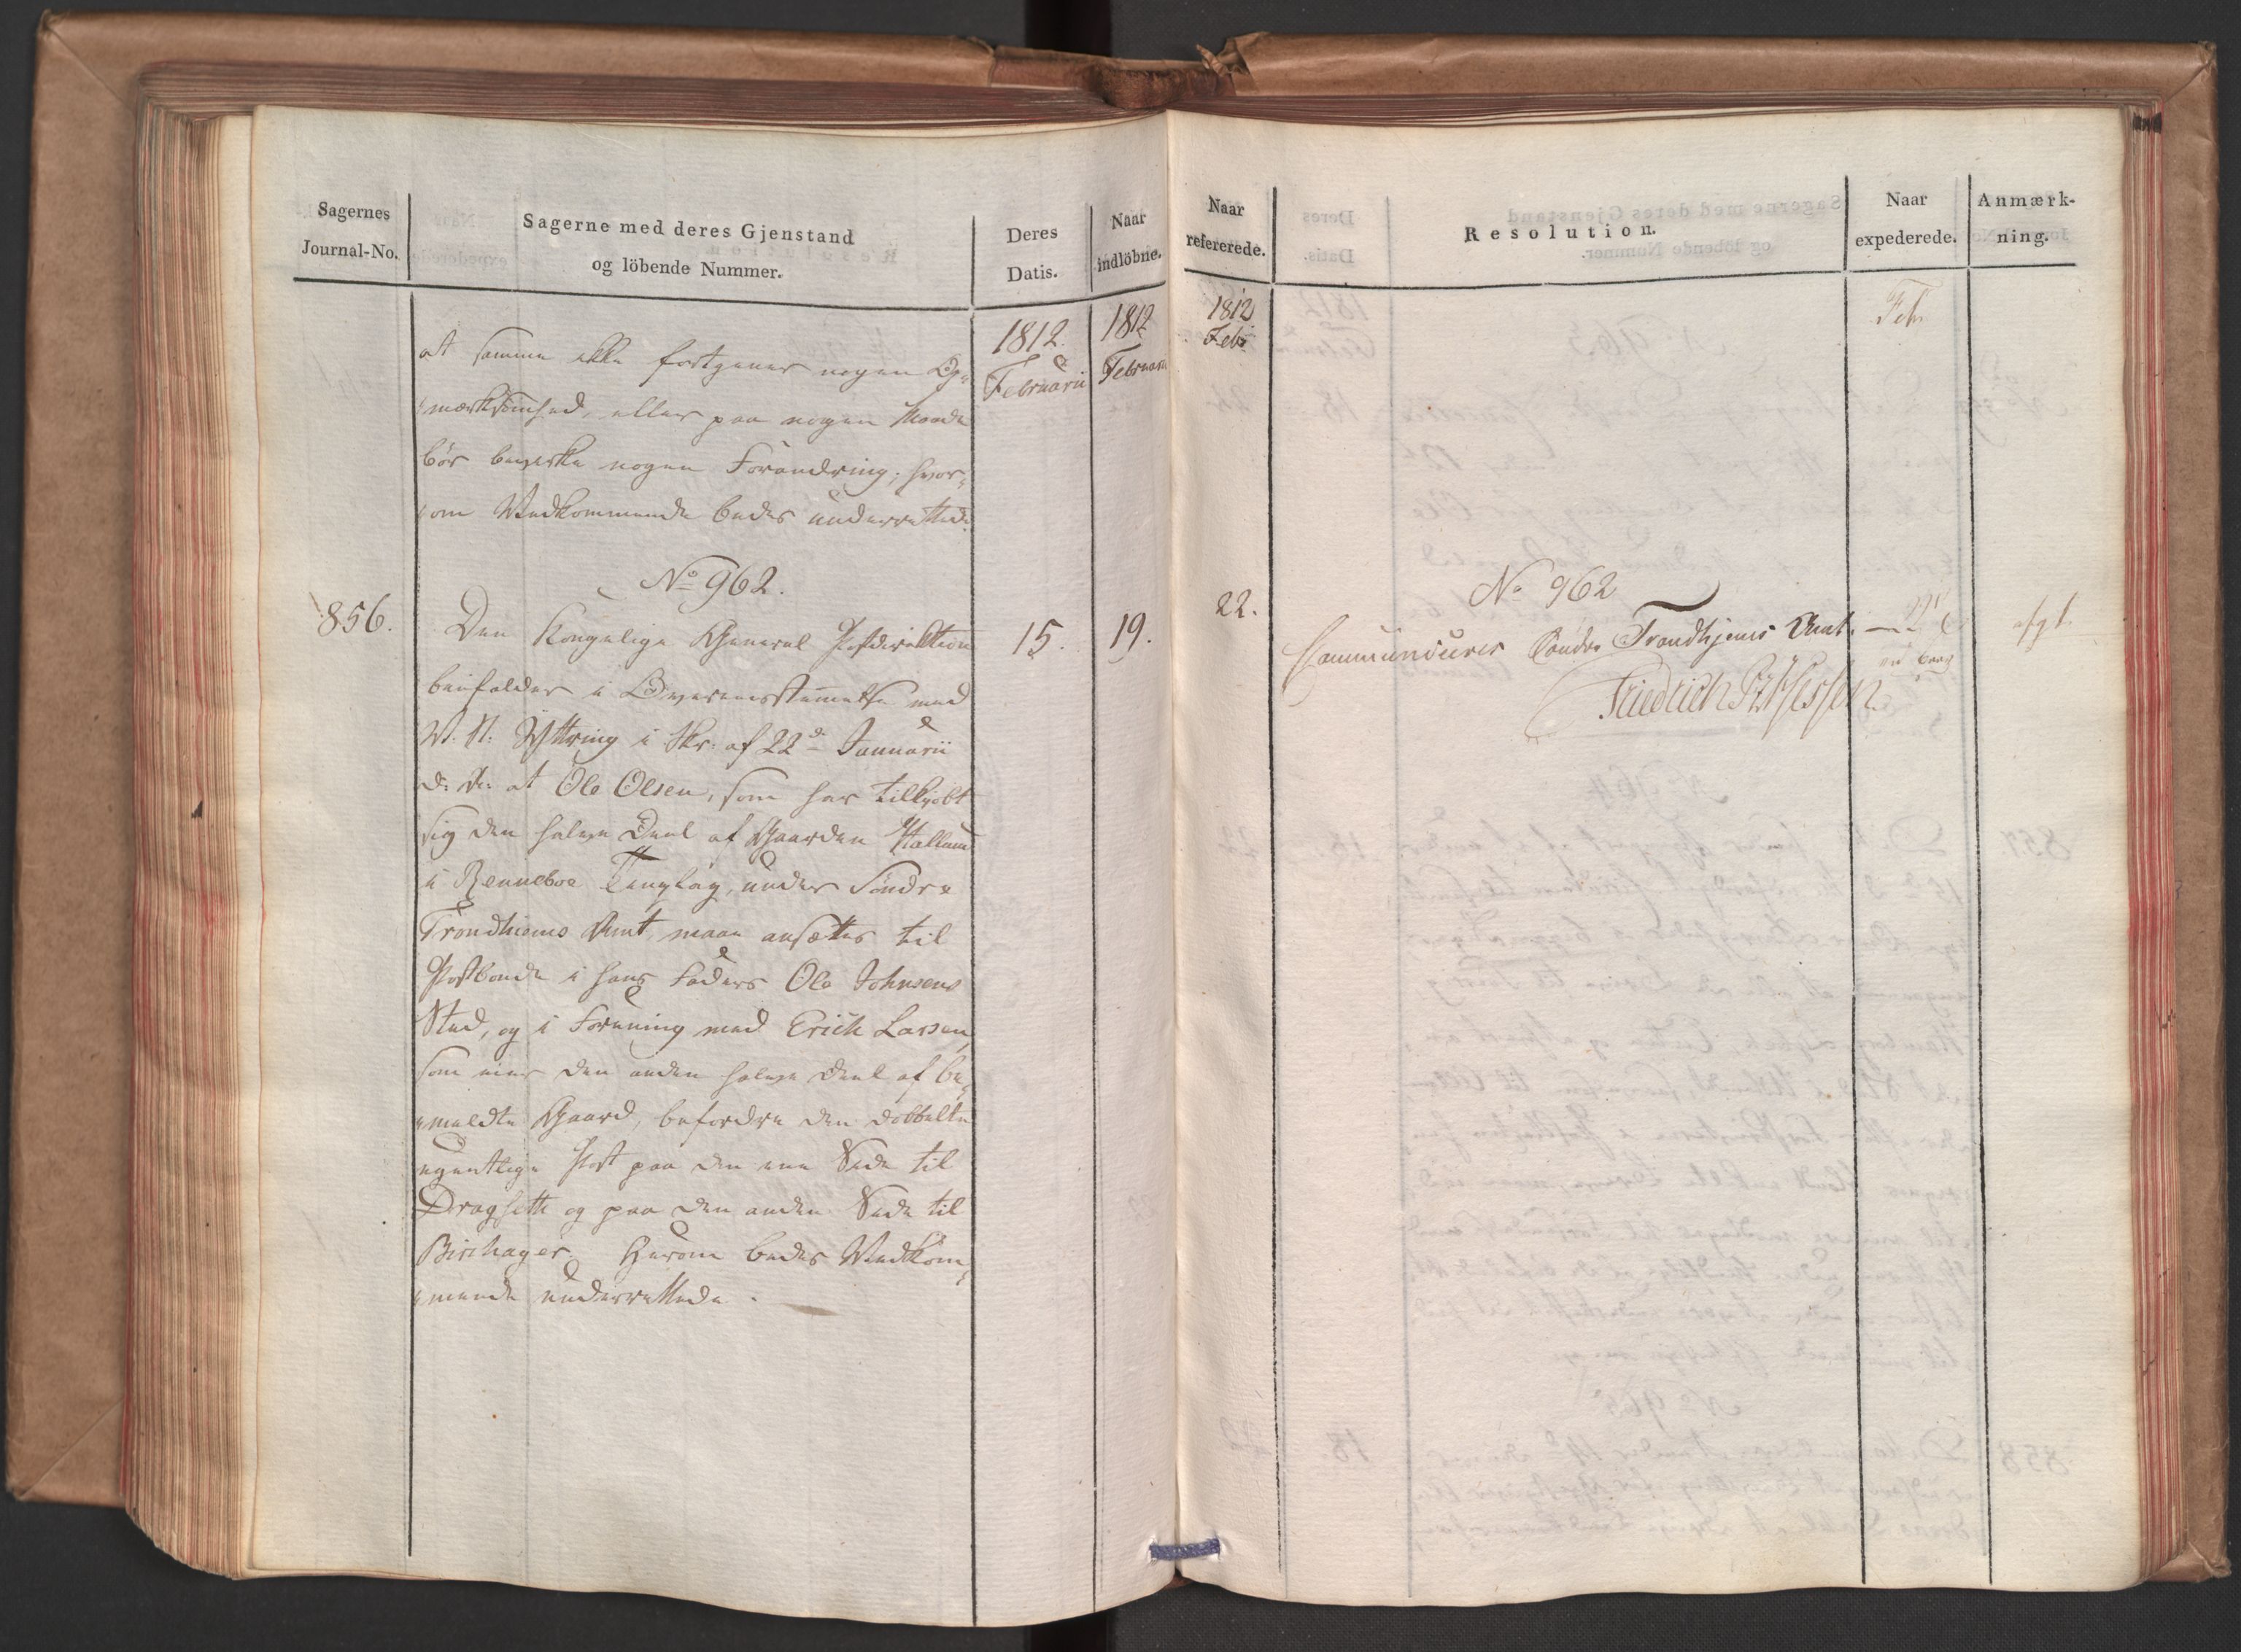 Sagernes
Journal-No.
Sagerne med deres Gjenstand
og löbende Nummer.
Deres
Datis.
Naar
indlöbne.
1812.
Februarii
1812
Februarii
at samme ikke fortjener nogen Op„
„mærksomhed, eller paa nogen Maade
bör bevirke nogen Forandring; hvor„
„om Vedkommende bedes underrettede.
No 962.
856.
15.
19.
Den Kongelige General Postdirektion
bifalder i Overeensstemmelse med
Yttring i Skr: af 22de Januarii
d: A: at Ole Olsen, som har tilkjøbt
sig den halve Deel af Gaarden
i Renneboe Tinglag, under Söndre
Trondhiems Amt, maae ansættes til
Postbonde i hans Faders Ole Johnsens
Sted, og i Forening med Erich Larsen,
som eier den anden halve Deel af be„
„meldte Gaard, befordre den dobbelte
egentlige Post paa den ene Side til
Dragseth og paa den anden Side til
Birchager. Herom bedes Vedkom„
„mende underrettede.
Naar
refererede.
Resolution.
Naar
expederede.
Anmærk-
ning.
1812
Febr
Febr
22.
No 962
Communiceres Söndre Trondhjems Amt.
Friedrich PzHessen
afgl.